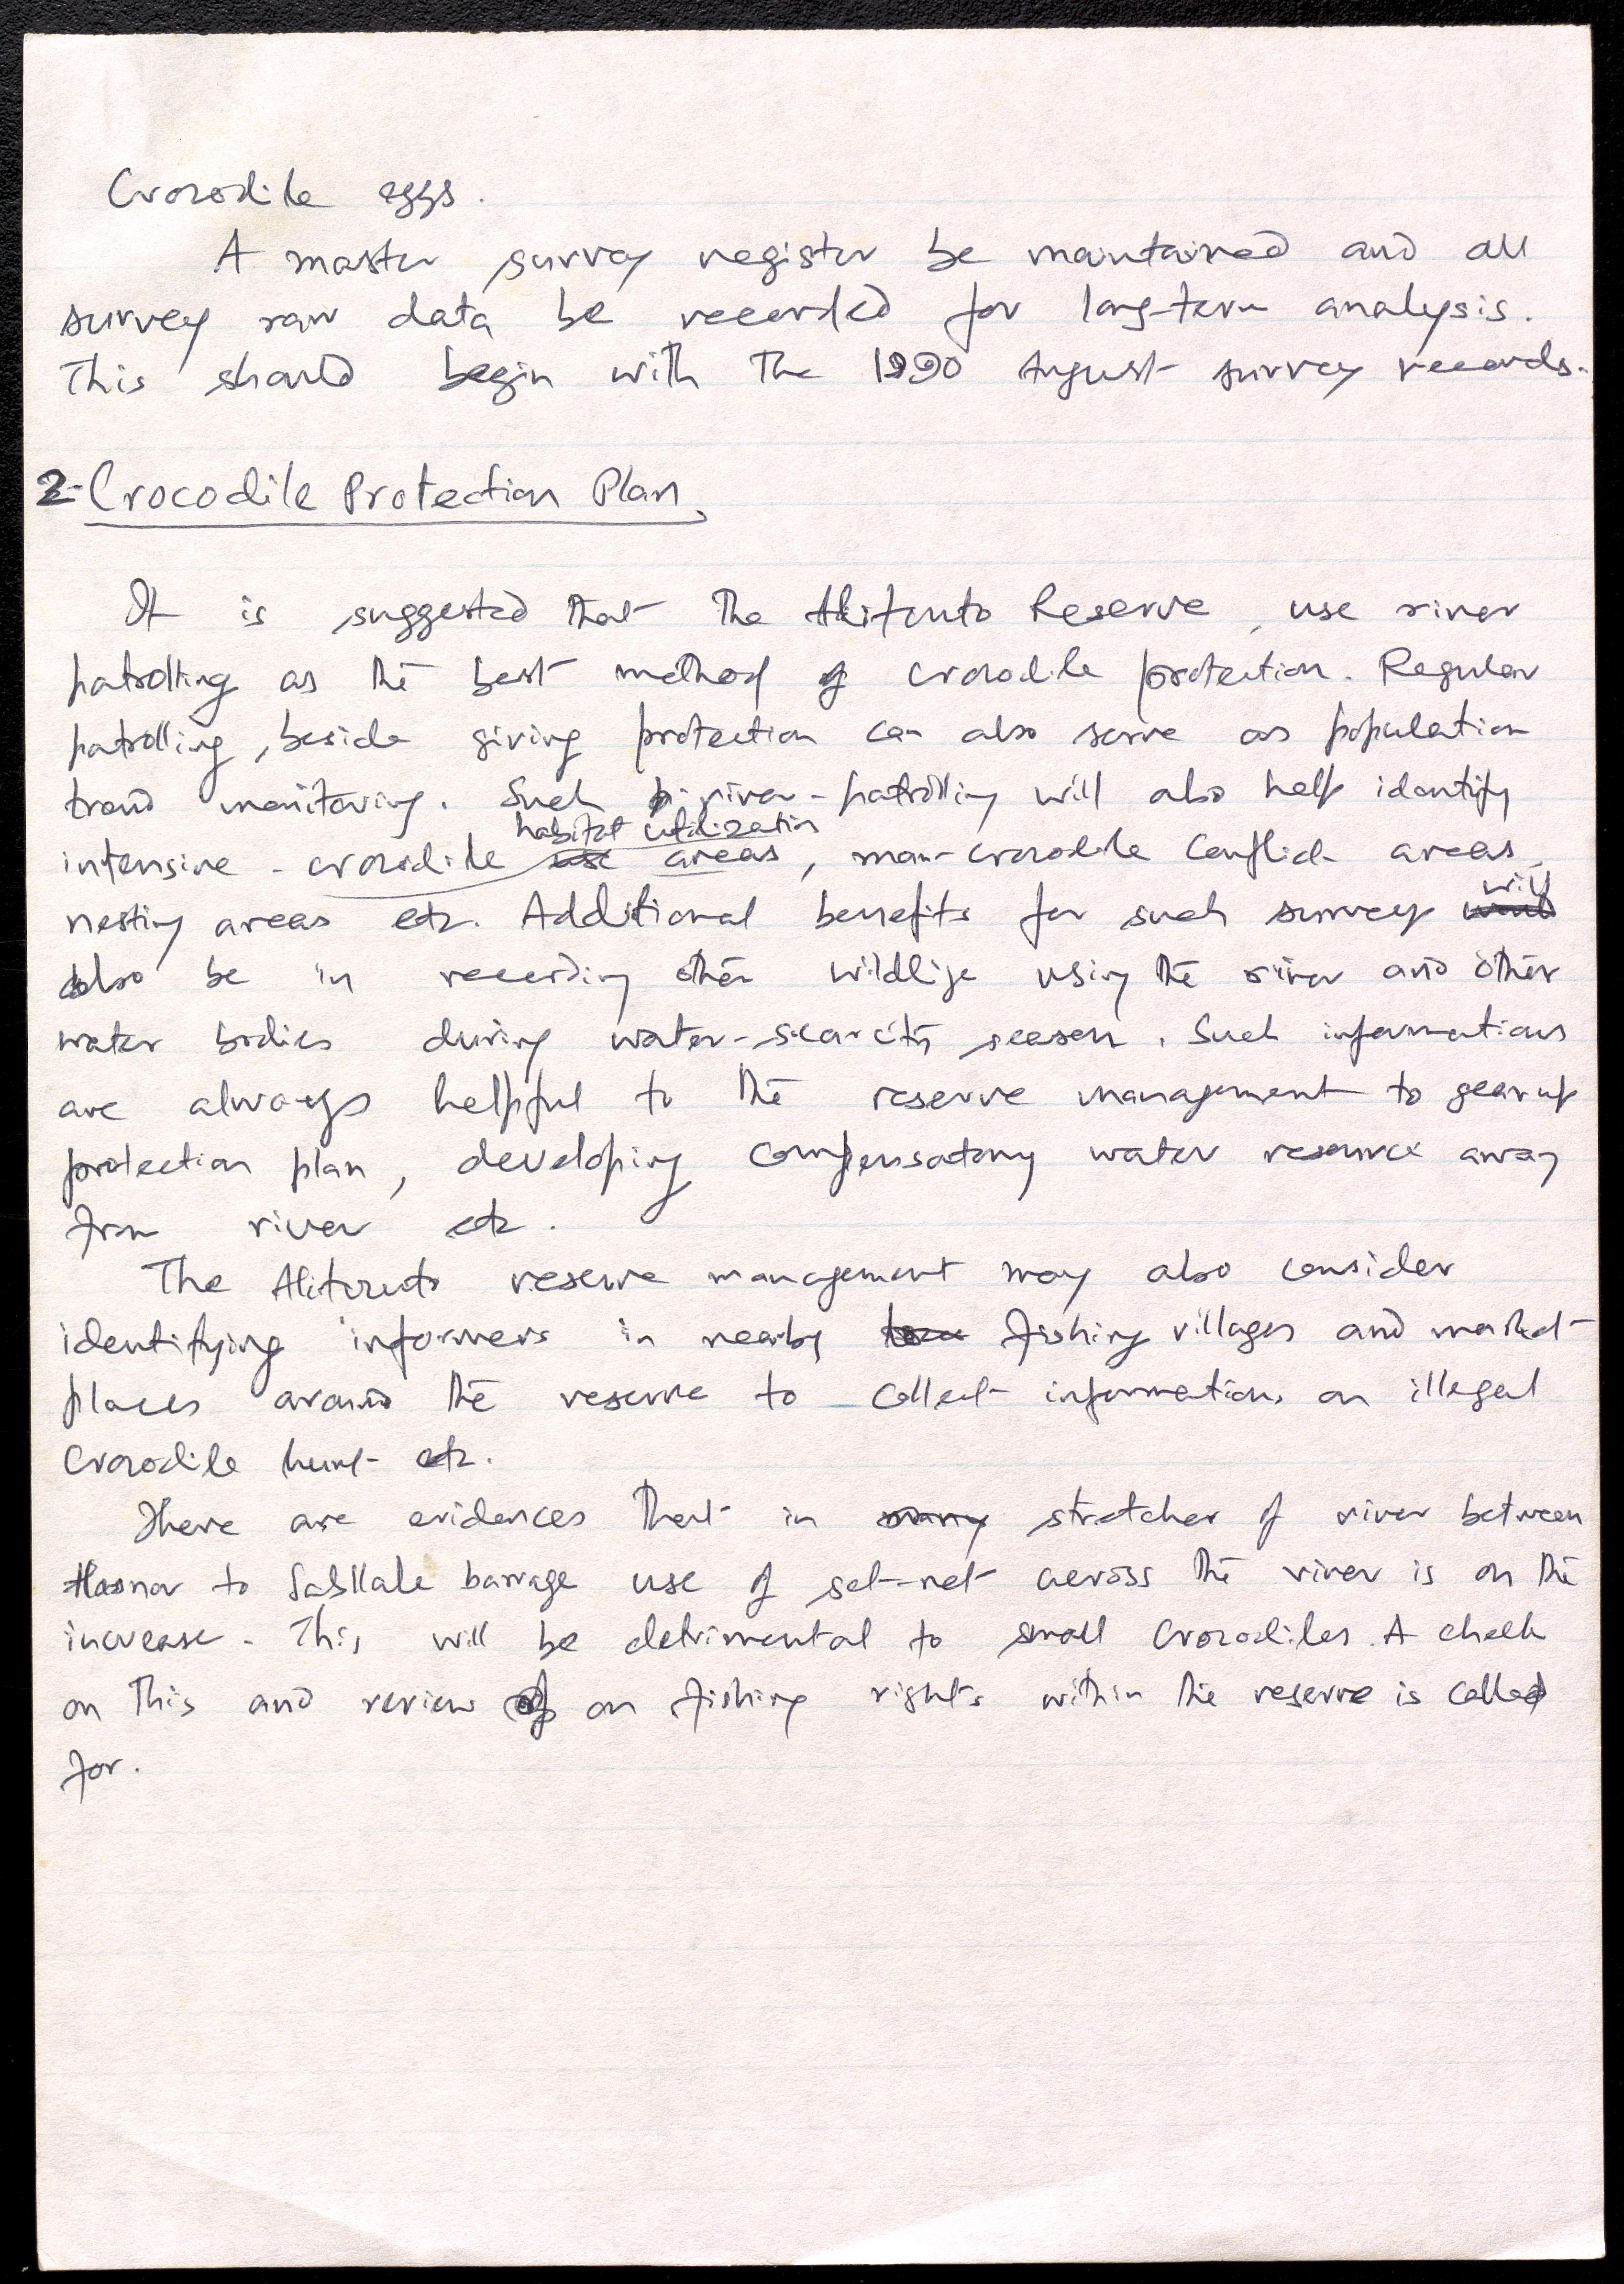 Crocodile eggs.
A master survey register be maintained and all
survey raw data be recorded for long-term analysis.
This should begin with the 1990 August survey records.
2- Crocodile Protection Plan
It is suggested that the Alitauto Reserve, use river
patrolling as the best method of crocodile protection. Regular
patrolling, beside giving protection can also serve as population
trend monitoring. Such river-patrolling will also help identify
habitat utilization
intensive - crocodile use areas, man-crocodile conflict areas,
will
nesting areas etc. Additional benefits for such survey
also be in recording other wildlife using the river and other
water bodies during water-scarcity season. Such informations
are always helpful to the reserve management to gear up
protection plan, developing compensatory water resource away
from river etc.
The reserve management may also consider
identifying informers in nearby fishing villages and market-
places around the reserve to collect informations on illegal
Crocodile hunt etc.
There are evidences that in many stretches of river between
to barrage use of set-net across the river is on the
increase. This will be detrimental to small crocodiles. A check
on this and review of on fishing rights within the reserve is called
for.